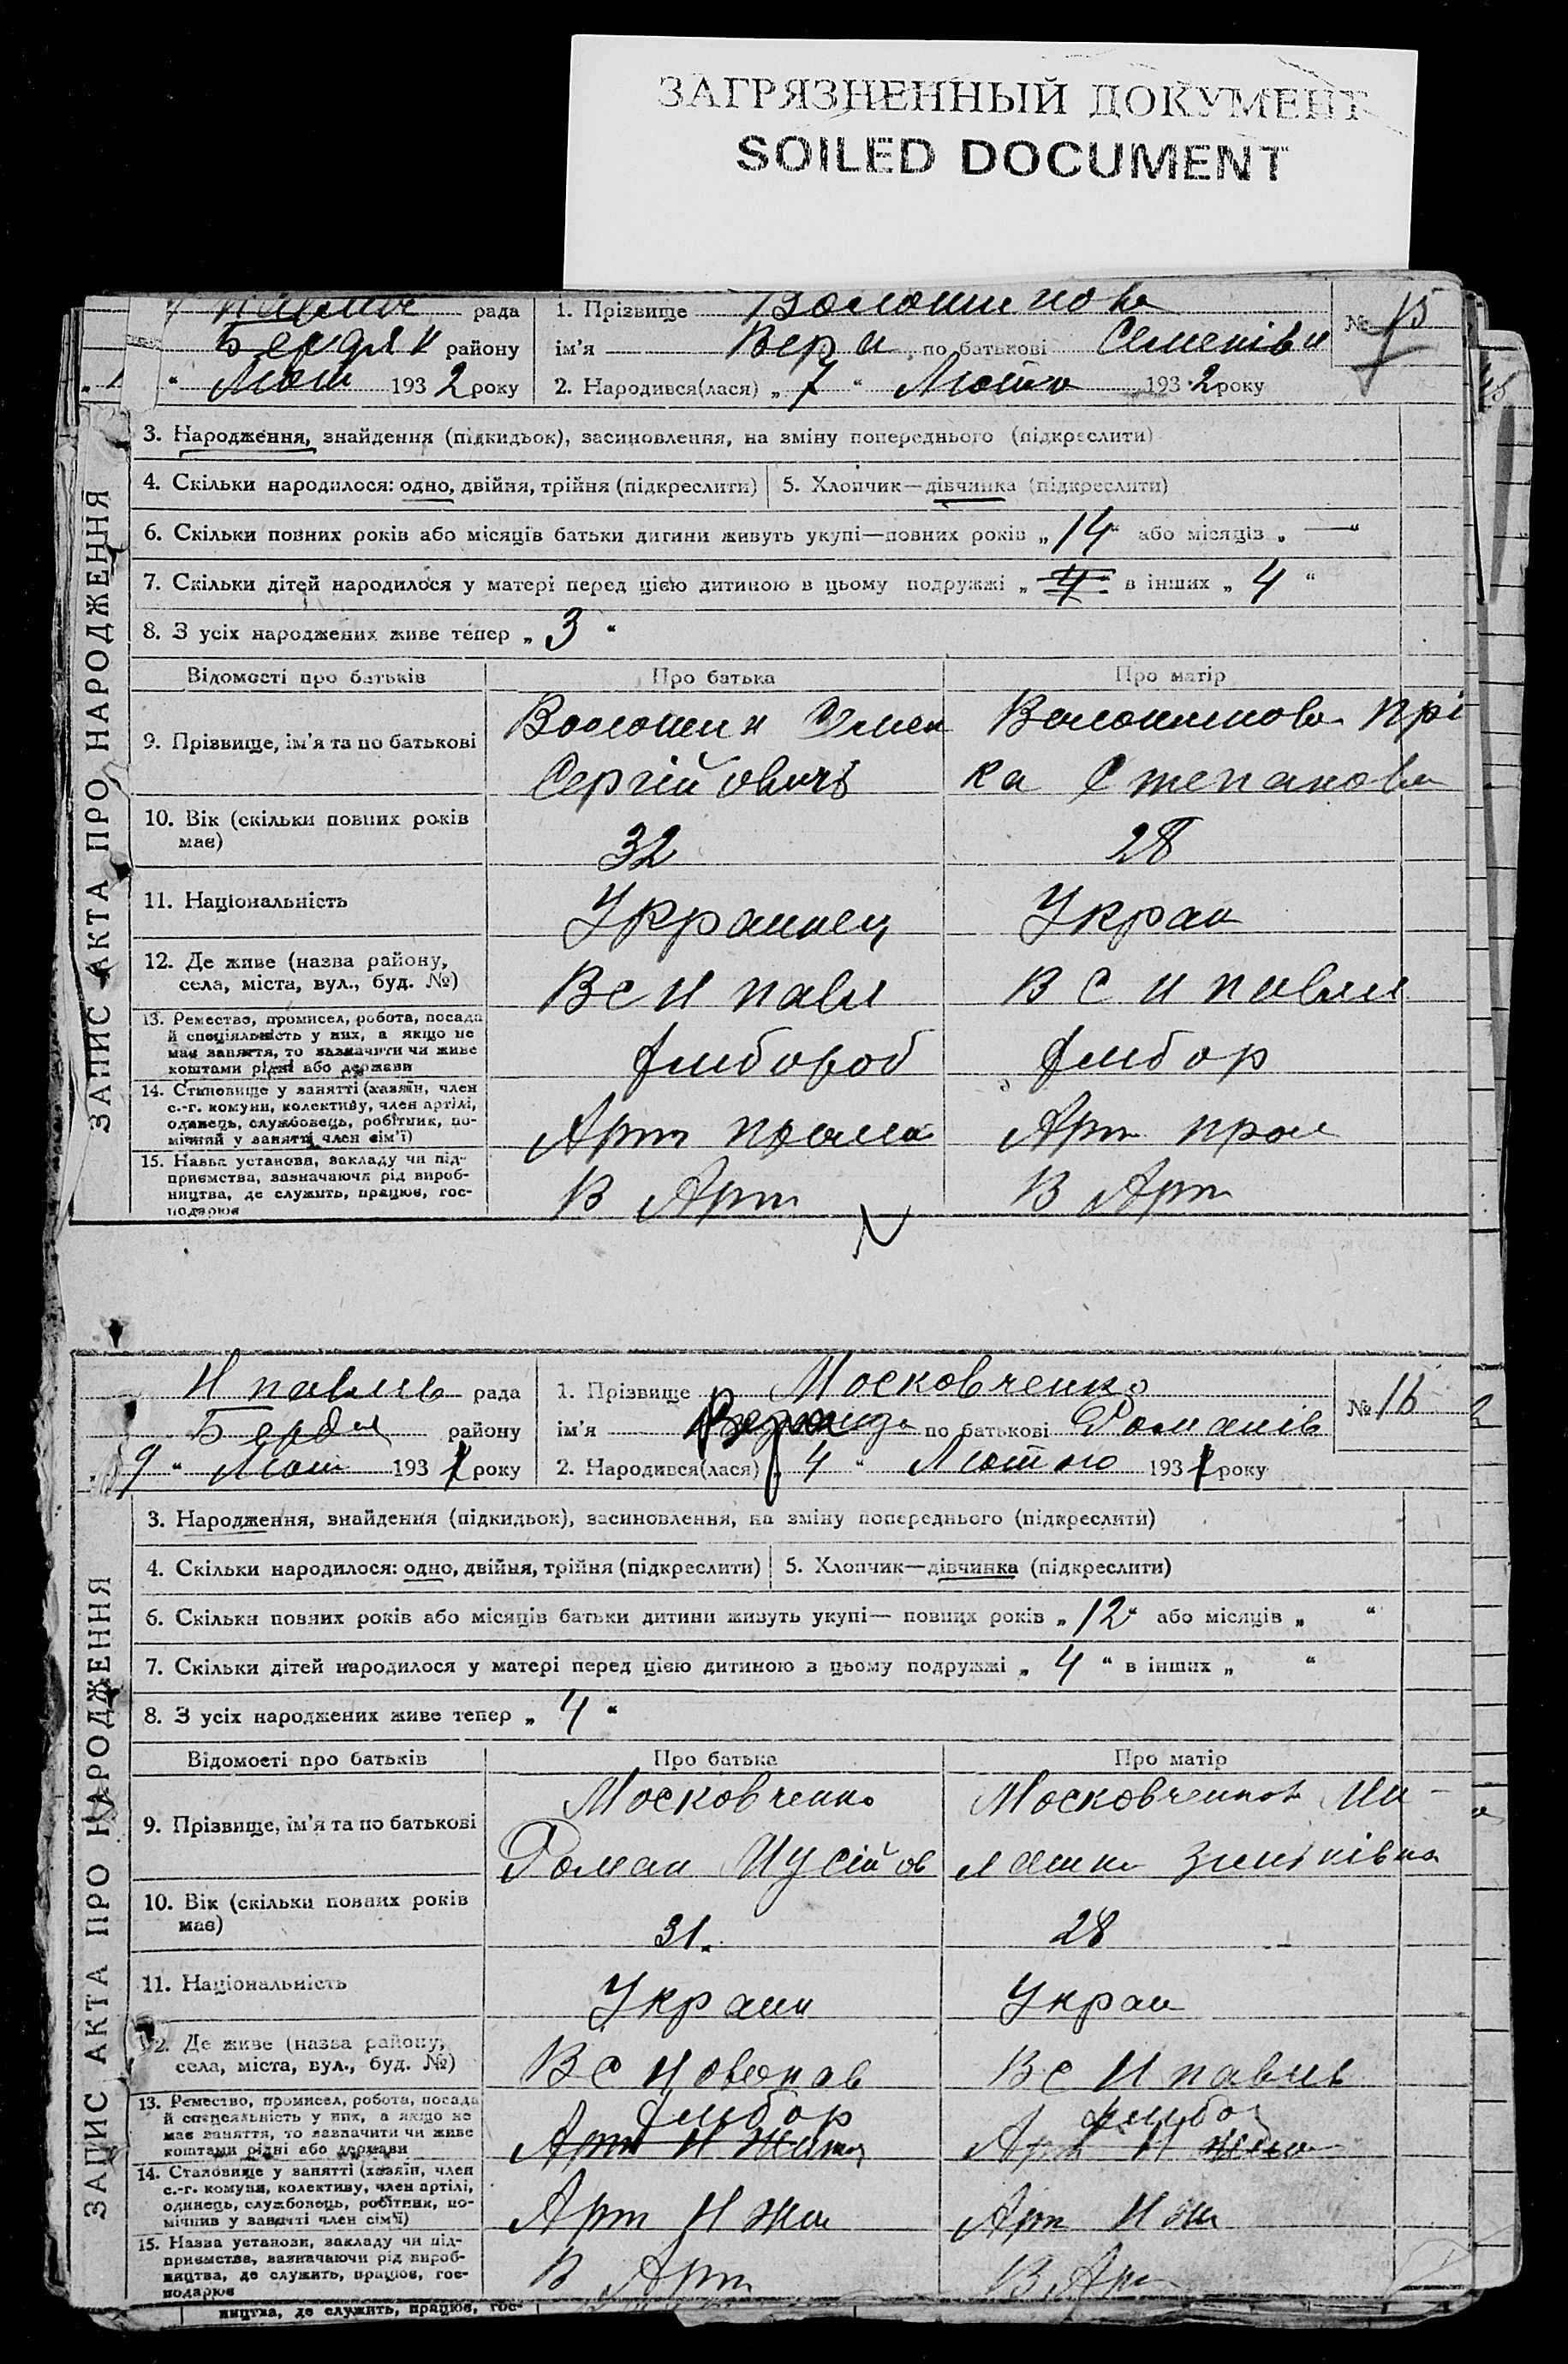 ЗАГРЯЗНЕННЫЙ ДОКУМЕНТ
SOILED DOCUMENT
рада
Бердян району
Лют 1932 року
1. Прізвище Волошинова
ім'я Вера по батькові Семенівн
2. Народився(лася) „ 7 “ Люта 1932 року
№ 15
ЗАПИС АКТА ПРО НАРОДЖЕННЯ
3. Народження, знайдення (підкидьок), засиновлення, на зміну попереднього (підкреслити)
4. Скільки народилося: одно, двійня, трійня (підкреслити)
5. Хлопчик—дівчинка (підкреслити)
6. Скільки повних років або місяців батьки дитини живуть укупі—повних років „ 14 “ або місяців „ — “
7. Скільки дітей народилося у матері перед цією дитиною в цьому подружжі „ 4 “ в інших „ 4 “
8. З усіх народжених живе тепер „ 3 “
Відомості про батьків Про батька Про матір
9. Прізвище, ім'я та по батькові
Волошин Семен
Сергійовичъ
Волошинова Прі
ка Степанова
10. Вік (скільки повних років
має)
32 28
11. Національність
Украинец Украи
12. Де живе (назва району,
села, міста, вул., буд. №)
В с Н павл В с Н павли
13. Ремество, промисел, робота, посада
й спеціяльність у них, а якщо не
має заняття, то зазначити чи живе
коштами рідні або держави
Хлибороб Хлибор
14. Становище у занятті (хазяїн, член
с.-г. комуни, колективу, член артілі,
одинець, службовець, робітник, по-
мічний у занятті член сім'ї)
Арт Арт
15. Назва установи, закладу чи під-
приємства, зазначаючи рід вироб-
ництва, де служить, працює, гос-
подарює
В Арт В Арт
Н павлів рада
Бердя району
9 “ Лют 193 року
1. Прізвище Московченко
ім'я по батькові Романів
2. Народився(лася) „ 4 “ Лютого 193 року
№ 16
ЗАПИС АКТА ПРО НАРОДЖЕННЯ
3. Народження, знайдення (підкидьок), засиновлення, на зміну попереднього (підкреслити)
4. Скільки народилося: одно, двійня, трійня (підкреслити)
5. Хлопчик—дівчинка (підкреслити)
6. Скільки повних років або місяців батьки дитини живуть укупі— повних років „ 12 “ або місяців „ “
7. Скільки дітей народилося у матері перед цією дитиною в цьому подружжі „ 4 “ в інших „ “
8. З усіх народжених живе тепер „ 4 “
Відомості про батьків Про батька Про матір
9. Прізвище, ім'я та по батькові
Московченко
Роман Мусійов
Московченков Ми-
лашка Зинівівна
10. Вік (скільки повних років
має)
31. 28
11. Національність
Украин Украи
12. Де живе (назва району,
села, міста, вул., буд. №)
В с Новопав В с Н павлів
13. Ремество, промисел, робота, посада
й спеціяльність у них, а якщо не
має заняття, то зазначити чи живе
коштами рідні або держави
Хлибор Хлибо
14. Становище у занятті (хазяїн, член
с.-г. комуни, колективу, член артілі,
одинець, службовець, робітник, по-
мічник у занятті член сім'ї)
Арт Н Жи Арт Н Жи
15. Назва установи, закладу чи під-
приємства, зазначаючи рід вироб-
ництва, де служить, працює, гос-
подарює
В Арт В Ар
ництва, де служить, працює, гос-